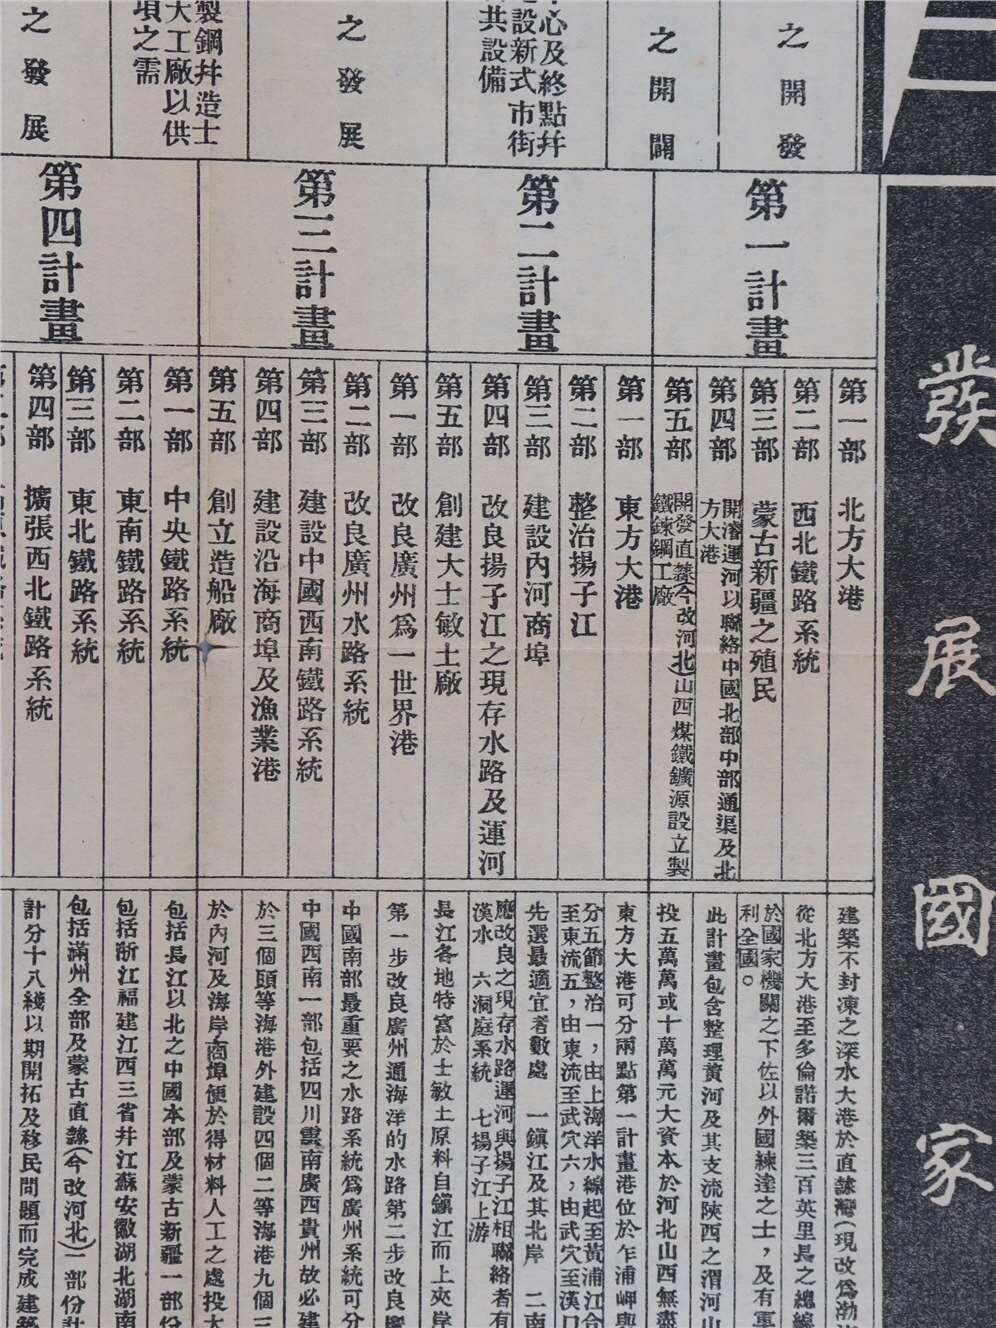 發展國家
之開發
之開闢
心及終點幷
設新式市街
共設備
之發展
製鋼幷造士
大工廠以供
項之需
之發展
第一計畫
第二計畫
第三計畫
第四計畫
第一部 北方大港
第二部 西北鐵路系統
第三部 蒙古新疆之殖民
第四部 開濬運河以聯絡中國北部中部通渠及北方大港
第五部 開發直隸(今改河北)山西煤鐵鑛源設立製鐵鍊鋼工廠
第一部 東方大港
第二部 整治揚子江
第三部 建設內河商埠
第四部 改良揚子江之現存水路及運河
第五部 創建大士敏土廠
第一部 改良廣州為一世界港
第二部 改良廣州水路系統
第三部 建設中國西南鐵路系統
第四部 建設沿海商埠及漁業港
第五部 創立造船廠
第一部 中央鐵路系統
第二部 東南鐵路系統
第三部 東北鐵路系統
第四部 擴張西北鐵路系統
建築不封凍之深水大港於直隸灣(現改為渤
從北方大港至多倫諾爾築三百英里長之總線
於國家機關之下佐以外國練達之士，及有軍
利全國。
此計畫包含整理黃河及其支流陝西之渭河山
投五萬萬或十萬萬元大資本於河北山西無盡
東方大港可分兩點第一計畫港位於乍浦岬與
分五節整治一，由上海洋水線起至黃浦江合
至東流五，由東流至武穴六，由武穴至漢口
先選最適宜者數處 一鎮江及其北岸 二南
應改良之現存水路運河與揚子江相聯絡者有
漢水 六洞庭系統 七揚子江上游
長江各地特富於士敏土原料自鎮江而上夾岸
第一步改良廣州通海洋的水路第二步改良廣
中國南部最重要之水路系統為廣州系統可分
中國西南一部包括四川雲南廣西貴州故必建
於三個頭等海港外建設四個二等海港九個三
於內河及海岸商埠便於得材料人工之處投大
包括長江以北之中國本部及蒙古新疆一部份
包括浙江福建江西三省幷江蘇安徽湖北湖南
包括滿州全部及蒙古直隸(今改河北)一部份計
計分十八綫以期開拓及移民問題而完成建築